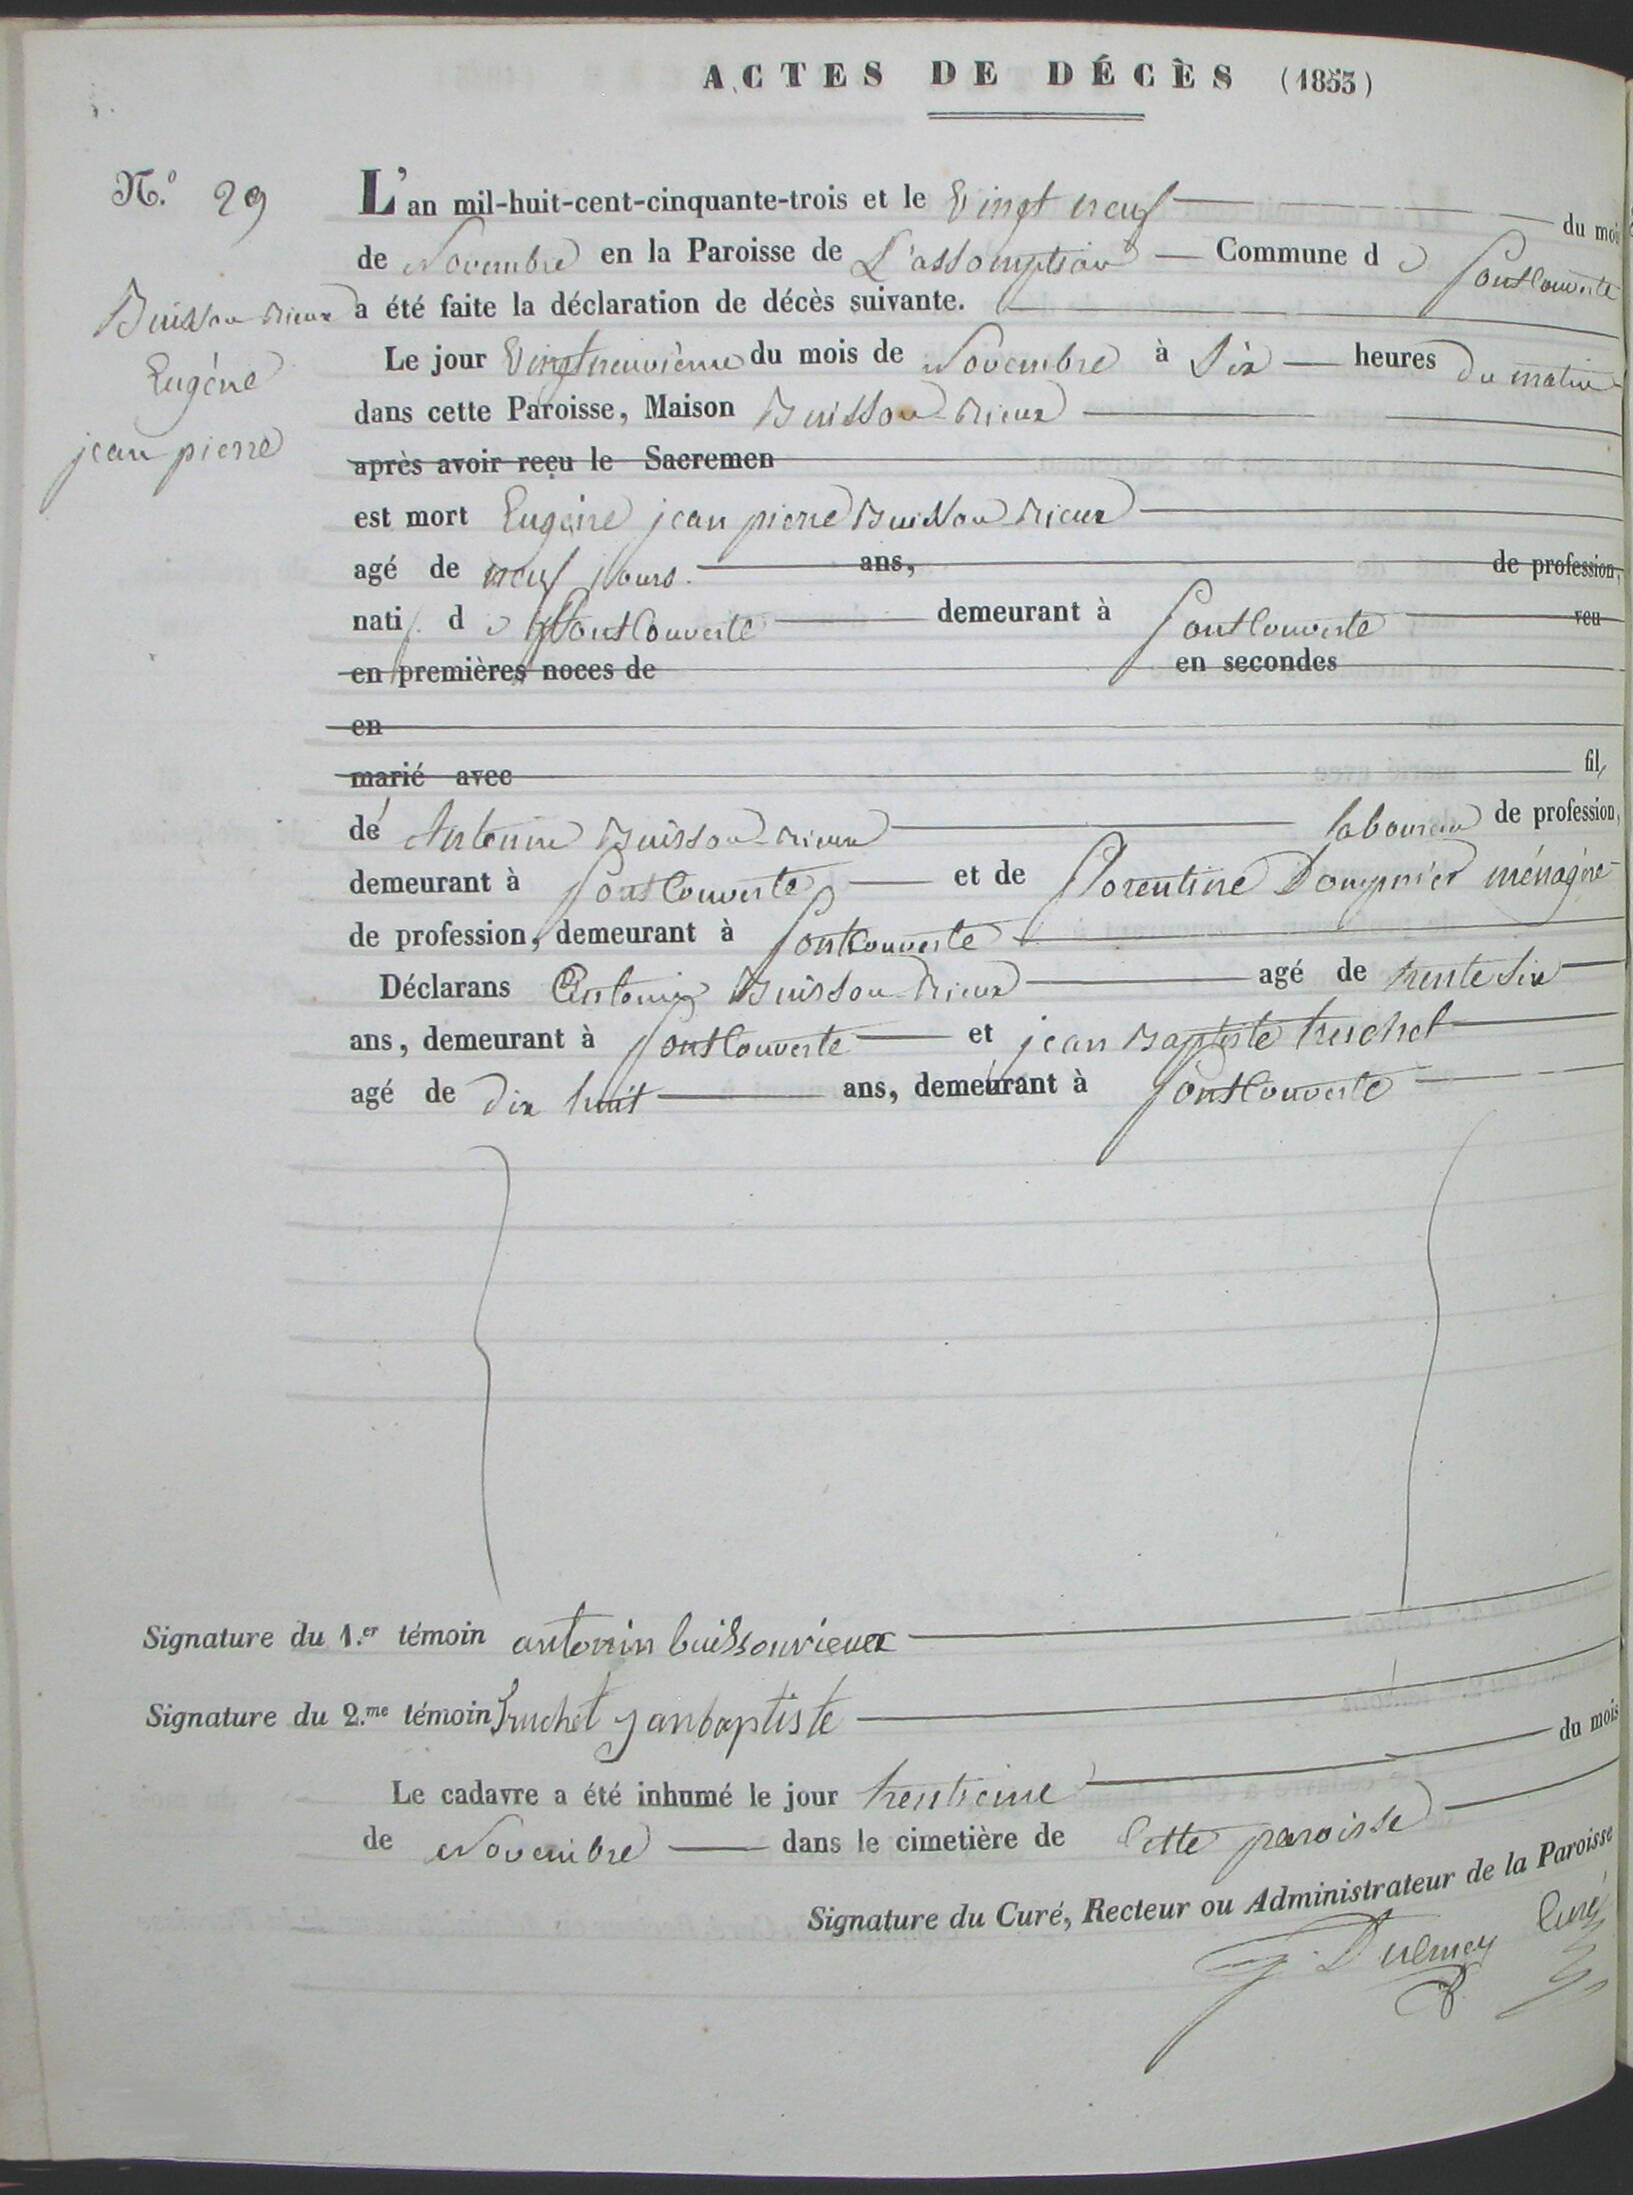 ACTES DE DÉCÈS (1853)
N.º 29
L'an mil-huit-cent-cinquante-trois et le vingt neuf du mois
de Novembre en la Paroisse de L'assomption Commune de Fontcouverte
Buisson-Rieux
Eugène
jean pierre
a été faite la déclaration de décès suivante.
Le jour vingtneuvième du mois de Novembre à Six heures du matin
dans cette Paroisse, Maison Buisson-Rieux
après avoir reçu le Sacremen
est mort Eugène jean pierre Buisson Rieux
agé de neuf jours. ans, de profession,
natif de Fontcouverte demeurant à Fontcouverte veu
en premières noces de en secondes
en
marié avec fils
de Antonin Buisson-Rieux laboureur de profession,
demeurant à Fontcouverte et de Florentine Dompnier ménagère
de profession, demeurant à Fontcouverte
Déclarans Antonin Buisson-Rieux agé de trente six
ans, demeurant à Fontcouverte et jean Baptiste truchet
agé de dix huit ans, demeurant à Fontcouverte
Signature du 1.er témoin antonin buissonrieux
Signature du 2.me témoin Truchet janbaptiste
Le cadavre a été inhumé le jour trentième du mois
de Novembre dans le cimetière de Cette paroisse
Signature du Curé, Recteur ou Administrateur de la Paroisse
Curé